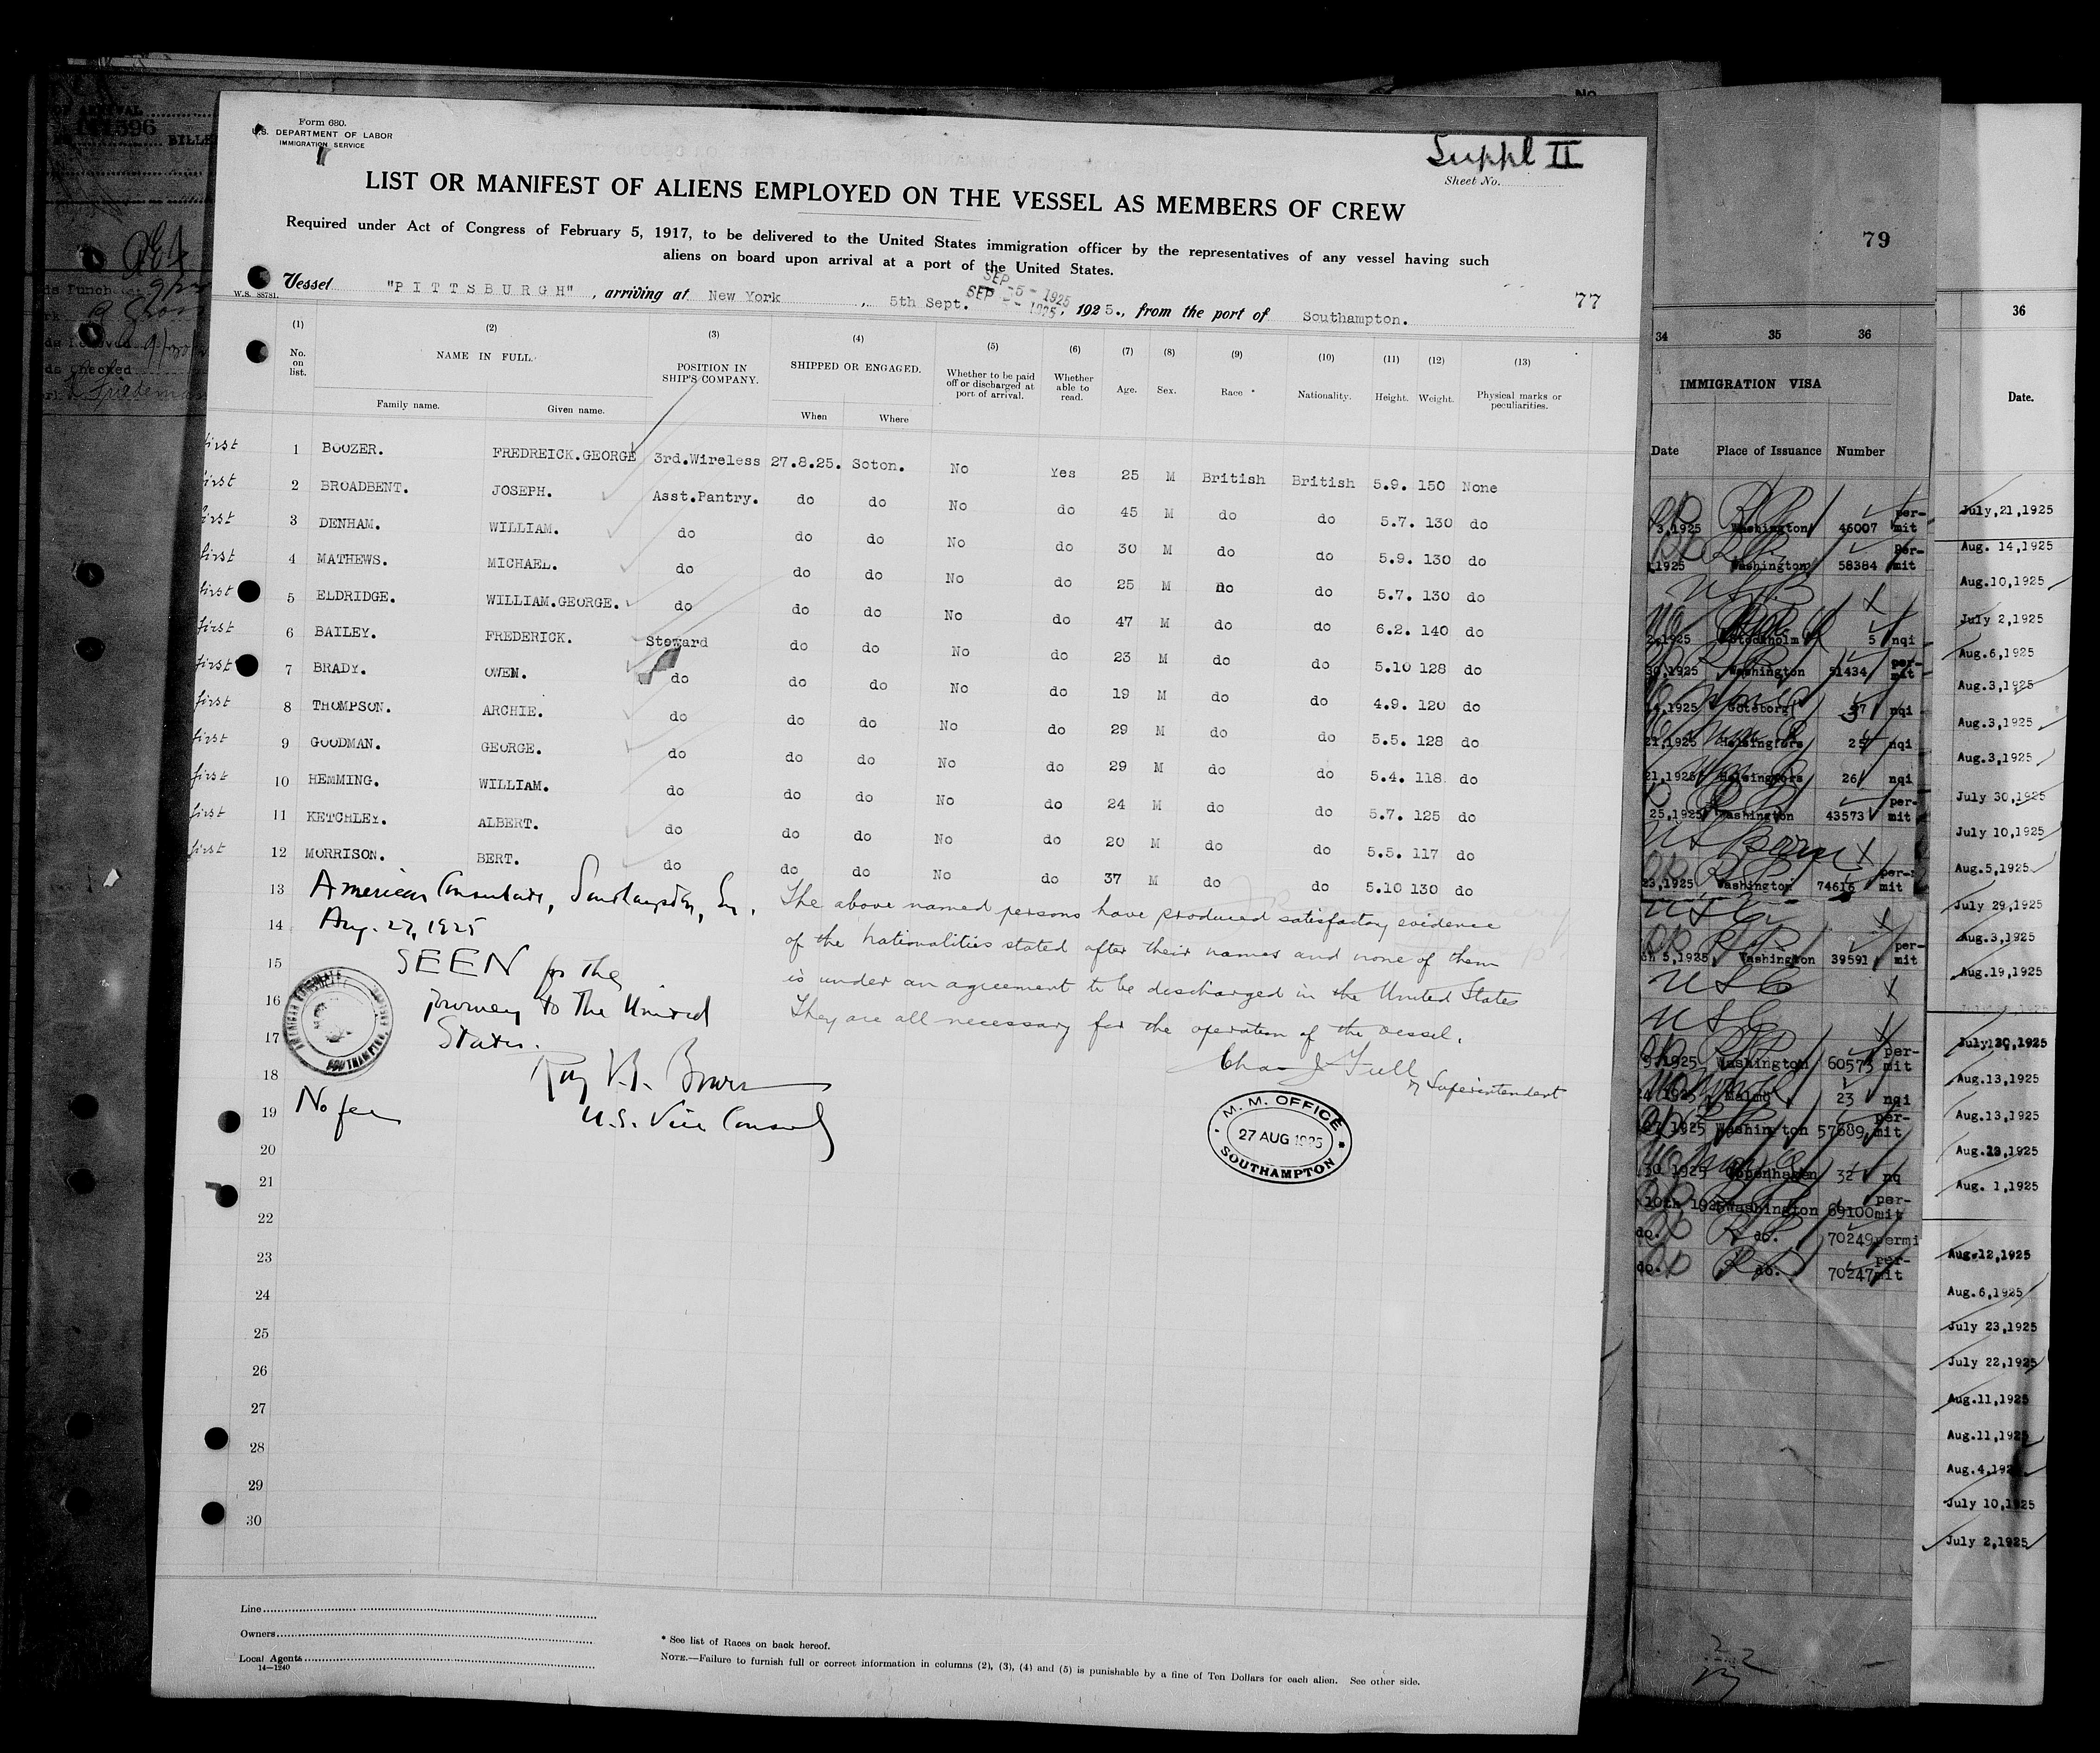 Form 680.
U.S. DEPARTMENT OF LABOR
IMMIGRATION SERVICE
Suppl II
Sheet No.
LIST OR MANIFEST OF ALIENS EMPLOYED ON THE VESSEL AS MEMBERS OF CREW
Required under Act of Congress of February 5, 1917, to be delivered to the United States immigration officer by the representatives of any vessel having such
aliens on board upon arrival at a port of the United States.
SEP -5 - 1925
W.S. 88781. Vessel "PITTSBURGH", arriving at New York, 5th Sept. 1925., from the port of Southampton. 77
(1) (2) (3) (4) (5) (6) (7) (8) (9) (10) (11) (12) (13)
No. on list. NAME IN FULL. POSITION IN SHIP'S COMPANY. SHIPPED OR ENGAGED. Whether to be paid off or discharged at port of arrival. Whether able to read. Age. Sex. Race * Nationality. Height. Weight. Physical marks or peculiarities.
Family name. Given name. When Where
first 1 BOOZER. FREDREICK.GEORGE 3rd.Wireless 27.8.25. Soton. No Yes 25 M British British 5.9. 150 None
first 2 BROADBENT. JOSEPH. Asst.Pantry. do do No do 45 M do do 5.7. 130 do
first 3 DENHAM. WILLIAM. do do do No do 30 M do do 5.9. 130 do
first 4 MATHEWS. MICHAEL. do do do No do 25 M do do 5.7. 130 do
first 5 ELDRIDGE. WILLIAM.GEORGE. do do do No do 47 M do do 6.2. 140 do
first 6 BAILEY. FREDERICK. Steward do do No do 23 M do do 5.10 128 do
first 7 BRADY. OWEN. do do do No do 19 M do do 4.9. 120 do
first 8 THOMPSON. ARCHIE. do do do No do 29 M do do 5.5. 128 do
first 9 GOODMAN. GEORGE. do do do No do 29 M do do 5.4. 118 do
first 10 HEMMING. WILLIAM. do do do No do 24 M do do 5.7. 125 do
first 11 KETCHLEY. ALBERT. do do do No do 20 M do do 5.5. 117 do
first 12 MORRISON. BERT. do do do No do 37 M do do 5.10 130 do
13
14
15
16
17
18
19
20
21
22
23
24
25
26
27
28
29
30
American Consulate, Southampton, Eng.
Aug. 27, 1925
SEEN for the
journey to the United
States.
U.S. Vice Consul
No fee
AMERICAN CONSULATE SOUTHAMPTON
The above named persons have produced satisfactory evidence
of the nationalities stated after their names and none of them
is under an agreement to be discharged in the United States
They are all necessary for the operation of the vessel.
Superintendent
M. M. OFFICE
27 AUG 1925
SOUTHAMPTON
Line
Owners
Local Agents
14—1240
* See list of Races on back hereof.
NOTE.—Failure to furnish full or correct information in columns (2), (3), (4) and (5) is punishable by a fine of Ten Dollars for each alien. See other side.
79
34 35 36
IMMIGRATION VISA
Date Place of Issuance Number
3,1925 Washington 46007 per-mit
1925 Washington 58384 Per-mit
1925 Stockholm 5 nqi
30,1925 Washington 51434 per-mit
1925 Goteborg 37 nqi
21,1925 Helsingfors 25 nqi
21,1925 Helsingfors 26 nqi
25,1925 Washington 43573 per-mit
US Born
23,1925 Washington 74616 per-mit
5,1925 Washington 39591 per-mit
USC
1925 Washington 60573 per-mit
1925 Malmo 23 nqi
1925 Washington 57689 per-mit
30 1925 Copenhagen 32 nq
10th 1925 Washington 69100 per-mit
do. do. 70249 permi
do. do. 70247 per-mit
36
Date.
July,21,1925
Aug. 14,1925
Aug.10,1925
July 2,1925
Aug.6,1925
Aug.3,1925
Aug.3,1925
Aug.3,1925
July 30,1925
July 10,1925
Aug.5,1925
July 29,1925
Aug.3,1925
Aug.19,1925
Aug.13,1925
Aug.13,1925
Aug. 1,1925
Aug.12,1925
Aug.6,1925
July 23,1925
July 22,1925
Aug.11,1925
Aug.11,1925
Aug.4,1925
July 10,1925
July 2,1925